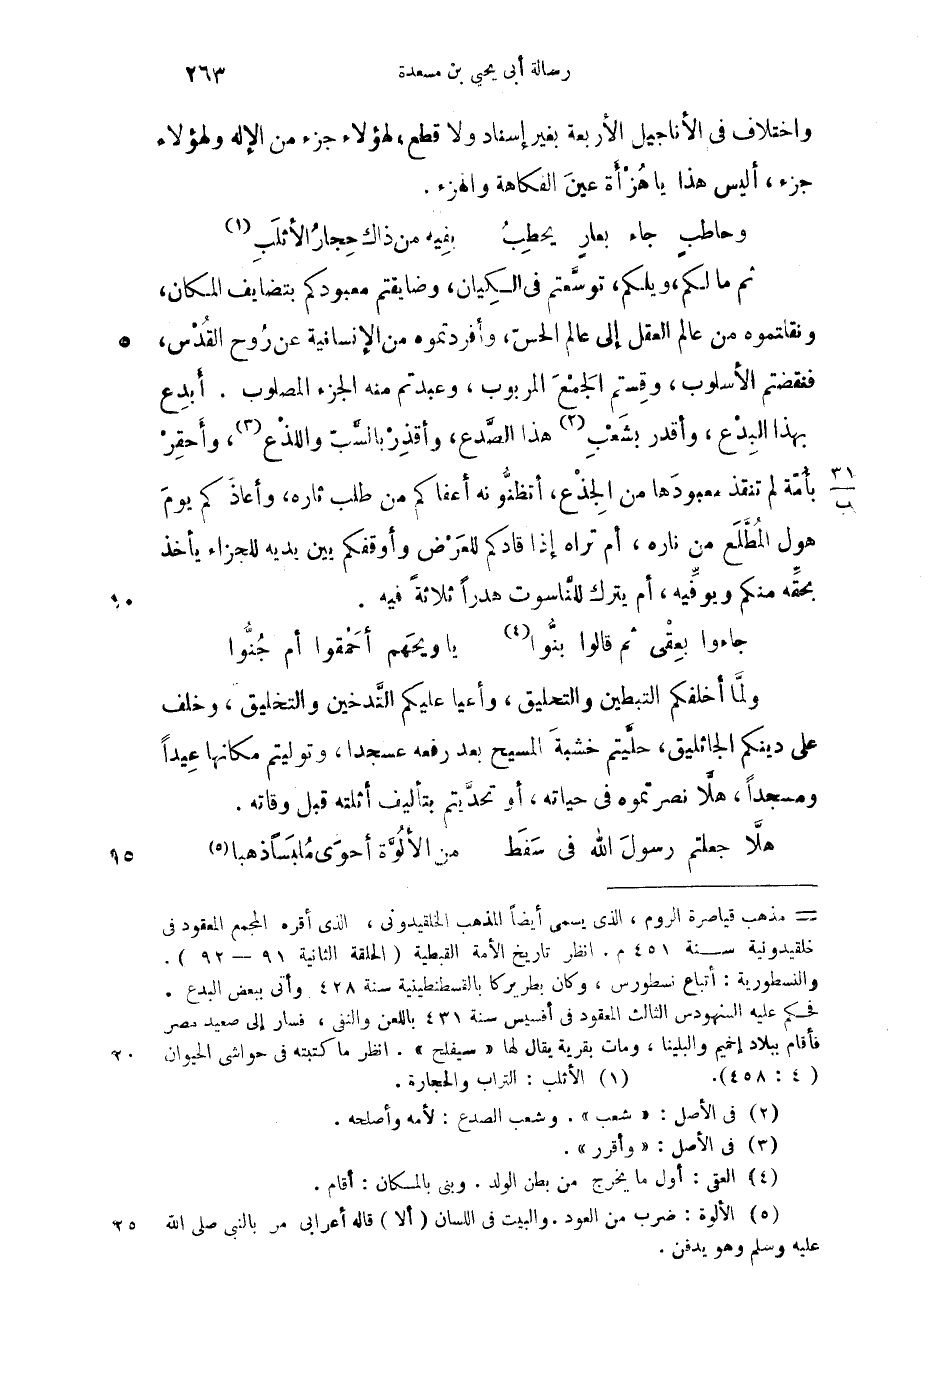 رسالة أبى يحيى بن مسعدة ٢٦٣
واختلاف فى الأناجيل الأربعة بغير إسناد ولا قطع، لهؤلاء جزء من الإله ولهؤلاء
جزء، أليس هذا ياهُزْأَة عينَ الفكاهة والهزء.
وحاطبٍ جاء بعارٍ يحطِبُ بفِيه من ذاك حِجارُ الأثلَبِ(١)
ثم مالكم، ويلكم، توسَّعتم فى الكِيان، وضايقتم معبودكم بتضايف المكان،
ونقلتموه من عالم العقل إلى عالم الحسّ، وأفردتموه من الإنسانية عن رُوح القُدْس، ٥
فنقضتم الأسلوب، وقِستم الجَمْعَ المربوب، وعبدتم منه الجزء المصلوب. أَبدِع
بهذا البِدْع، وأقدر بشَعْبِ(٢) هذا الصَّدع، وأقذِرْ بالسَّبّ واللذْع(٣)، وأَحقِرْ
بأمّة لم تنقذ معبودَها من الجِذْع، أتظنُّونه أعفاكم من طلب ثاره، وأعاذكم يومَ ٣١ ب
هول المُطَّلَع من ناره، أم تراه إذا قادكم للعَرْض وأوقفكم بين يديه للجزاء يأخذ
بحقِّه منكم ويوفِّيه، أم يترك للنَّاسوت هدراً ثلاثةً فيه. ١٠
جاءوا بعِقْى ثم قالوا بنُّوا(٤) ياويحَهم أحَمْقوا أم جُنُّوا
ولمَّا أخلفكم التبطين والتحليق، وأعيا عليكم التَّدخين والتخليق، وخلف
على دينكم الجاثليق، حلَّيتم خشبةَ المسيح بعد رفعه عسجدا، وتوليتم مكانها عِيداً
ومسجداً، هلَّا نصرتموه فى حياته، أو تحدَّيتم بتأليف أثلته قبل وقاته.
هلَّا جعلتم رسولَ الله فى سَفَط من الأَلُوَّة أحوَى مُلبَساً ذهبا(٥) ١٥
= مذهب قياصرة الروم، الذى يسمى أيضاً المذهب الخلقيدونى، الذى أقره المجمع المعقود فى
خلقيدونية سنة ٤٥١ م. انظر تاريخ الأمة القبطية (الحلقة الثانية ٩١ — ٩٢).
والنسطورية: أتباع نسطورس، وكان بطريركا بالقسطنطينية سنة ٤٢٨ وأتى ببعض البدع.
فحكم عليه السنهودس الثالث المعقود فى أفسيس سنة ٤٣١ باللعن والنفى، فسار إلى صعيد مصر
فأقام ببلاد إخميم والبلينا، ومات بقرية يقال لها «سيفلح». انظر ما كتبته فى حواشى الحيوان ٢٠
(٤: ٤٥٨). (١) الأثلب: التراب والحجارة.
(٢) فى الأصل: «شعب». وشعب الصدع: لأمه وأصلحه.
(٣) فى الأصل: «وأقرر».
(٤) العقى: أول ما يخرج من بطن الولد. وبنى بالمكان: أقام.
(٥) الألوة: ضرب من العود. والبيت فى اللسان (ألا) قاله أعرابى مر بالنبى صلى الله ٢٥
عليه وسلم وهو يدفن.